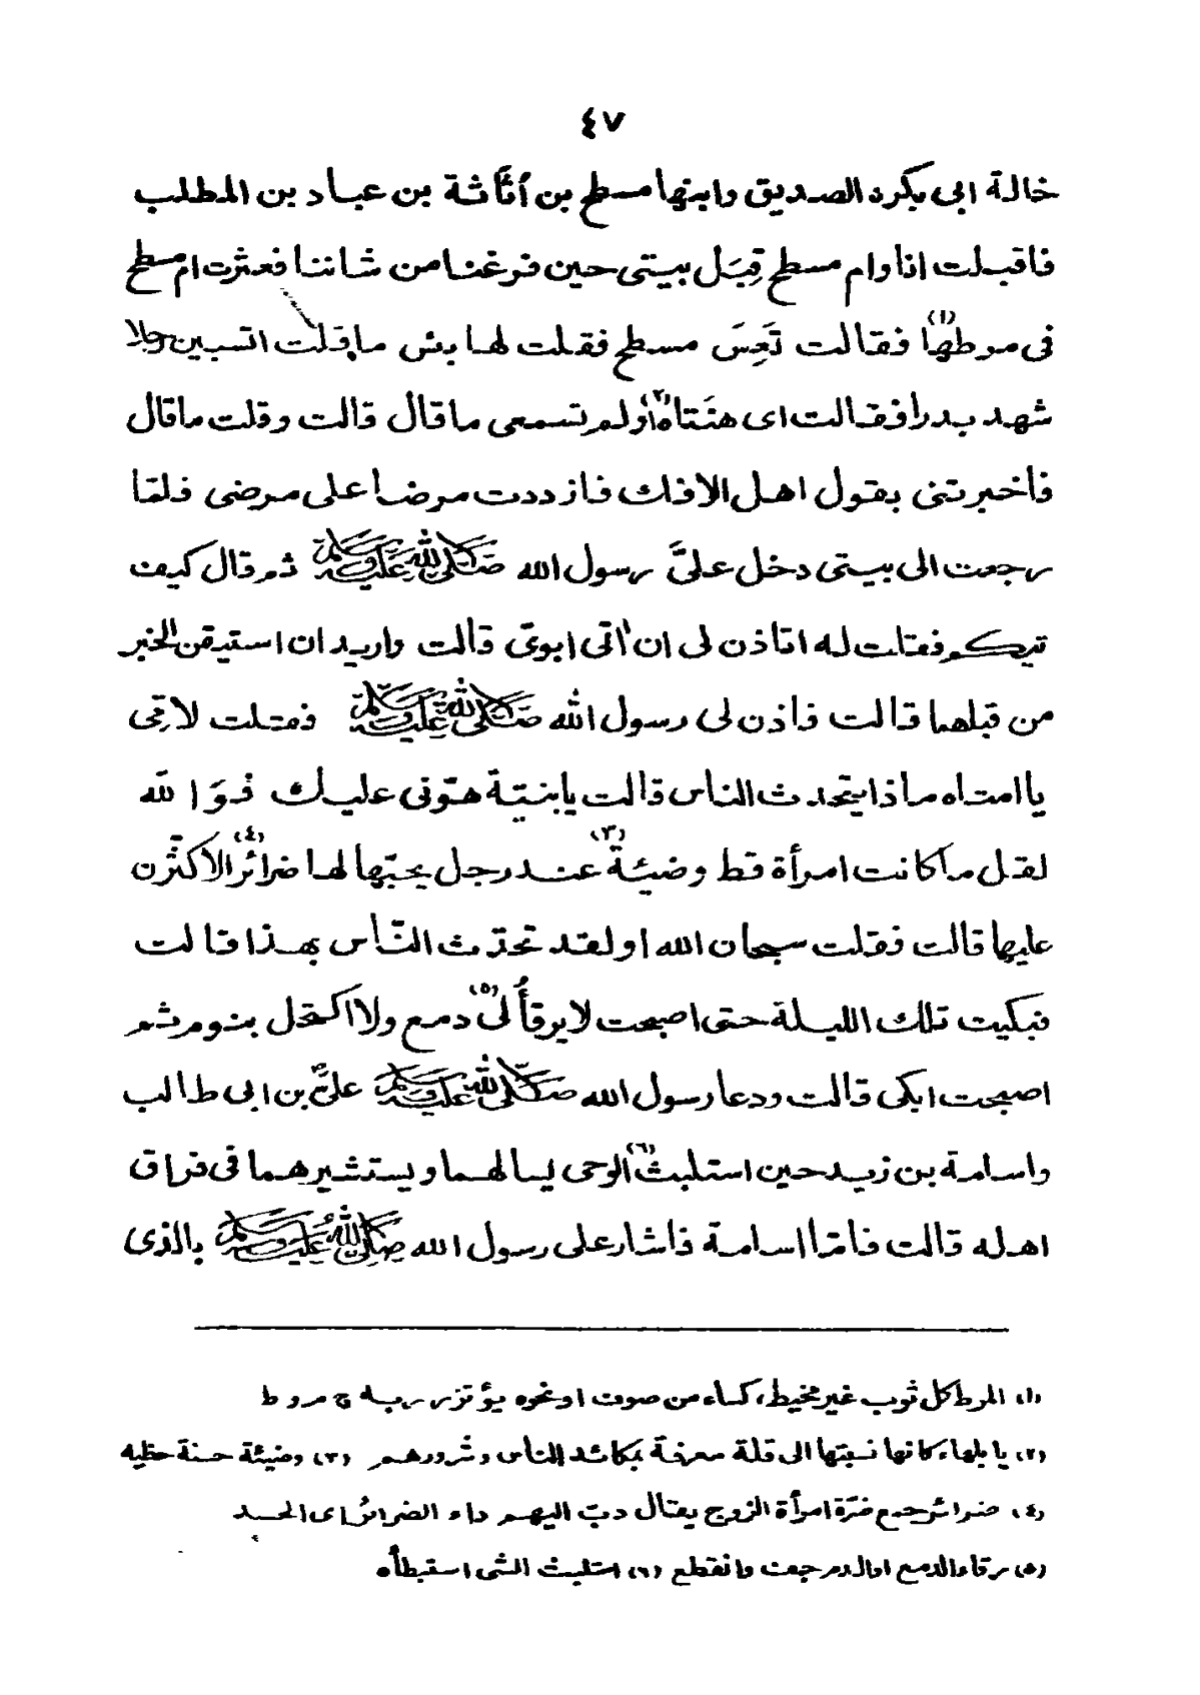 ٤٧
خالة ابی بكر الصديق وابنها مسطح بن أثَاثة بن عباد بن المطلب
فاقبلت انا وام مسطح قِبَل بيتی حين فرغنا من شاننا فعثرت ام مسطح
فی مرطها (١) فقالت تَعِسَ مسطح فقلت لها بئس ما قلت اتسبين رجلا
شهد بدرا فقالت ای هنَتاه (٢) أولم تسمعی ما قال قالت وقلت ما قال
فاخبرتنی بقول اهل الافك فازددت مرضا علی مرضی فلمّا
رجعت الی بيتی دخل علیَّ رسول الله صَلَّى اللهُ عَلَيْهِ وَسَلَّمَ ثم قال كيف
تيكم فقلت له اتاذن لی ان اٰتی ابویّ قالت واريد ان استيقن الخبر
من قبلهما قالت فاذن لی رسول الله صَلَّى اللهُ عَلَيْهِ وَسَلَّمَ فقلت لامّی
يا امتاه ماذا يتحدث الناس قالت يا بنيّة هوّنی عليك فوَالله
لقل ما كانت امرأة قط وضيئة (٣) عند رجل يحبّها لها ضرائر (٤) الا كثّرن
عليها قالت فقلت سبحان الله اولقد تحدّث النّاس بهذا قالت
فبكيت تلك الليلة حتی اصبحت لا يرقأُ لی (٥) دمع ولا اكتحل بنوم ثم
اصبحت ابكی قالت ودعا رسول الله صَلَّى اللهُ عَلَيْهِ وَسَلَّمَ علیَّ بن ابی طالب
واسامة بن زيد حين استلبث (٦) الوحی يسالهما ويستشيرهما فی فراق
اهله قالت فامّا اسامة فاشار علی رسول الله صَلَّى اللهُ عَلَيْهِ وَسَلَّمَ بالذی
(١) المرط كل ثوب غير مخيط، كساء من صوف او نحوه يؤتزر به ج مروط
(٢) يا بلهاء كانها نسبتها الی قلة معرفة بمكائد الناس وشرورهم (٣) وضيئة حسنة حظيه
(٤) ضرائر جمع ضرّة امرأة الزوج يقال دبّ اليهم داء الضرائر ای الحسد
(٥) رقاء الدمع او الدم جعت وانقطع (٦) استلبث الشی استبطأه